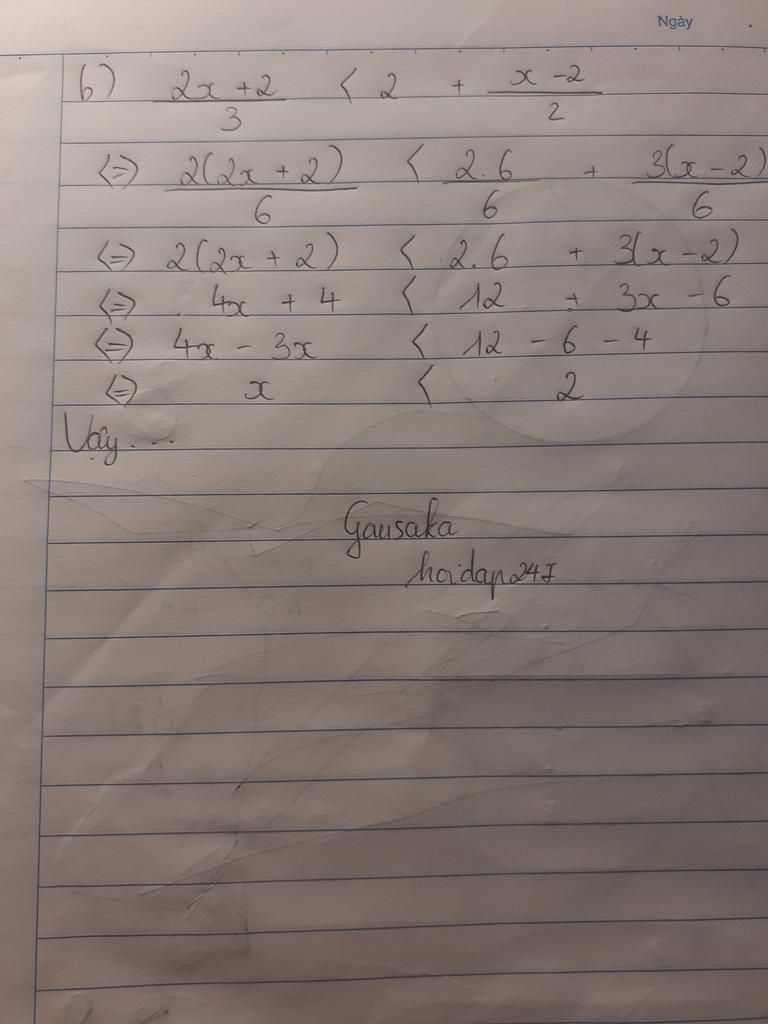 Ngày
b) (2x + 2)/3 < 2 + (x - 2)/2
<=> 2(2x + 2)/6 < 2.6/6 + 3(x - 2)/6
<=> 2(2x + 2) < 2.6 + 3(x - 2)
<=> 4x + 4 < 12 + 3x - 6
<=> 4x - 3x < 12 - 6 - 4
<=> x < 2
Vậy...
Gausaka
hoidap247